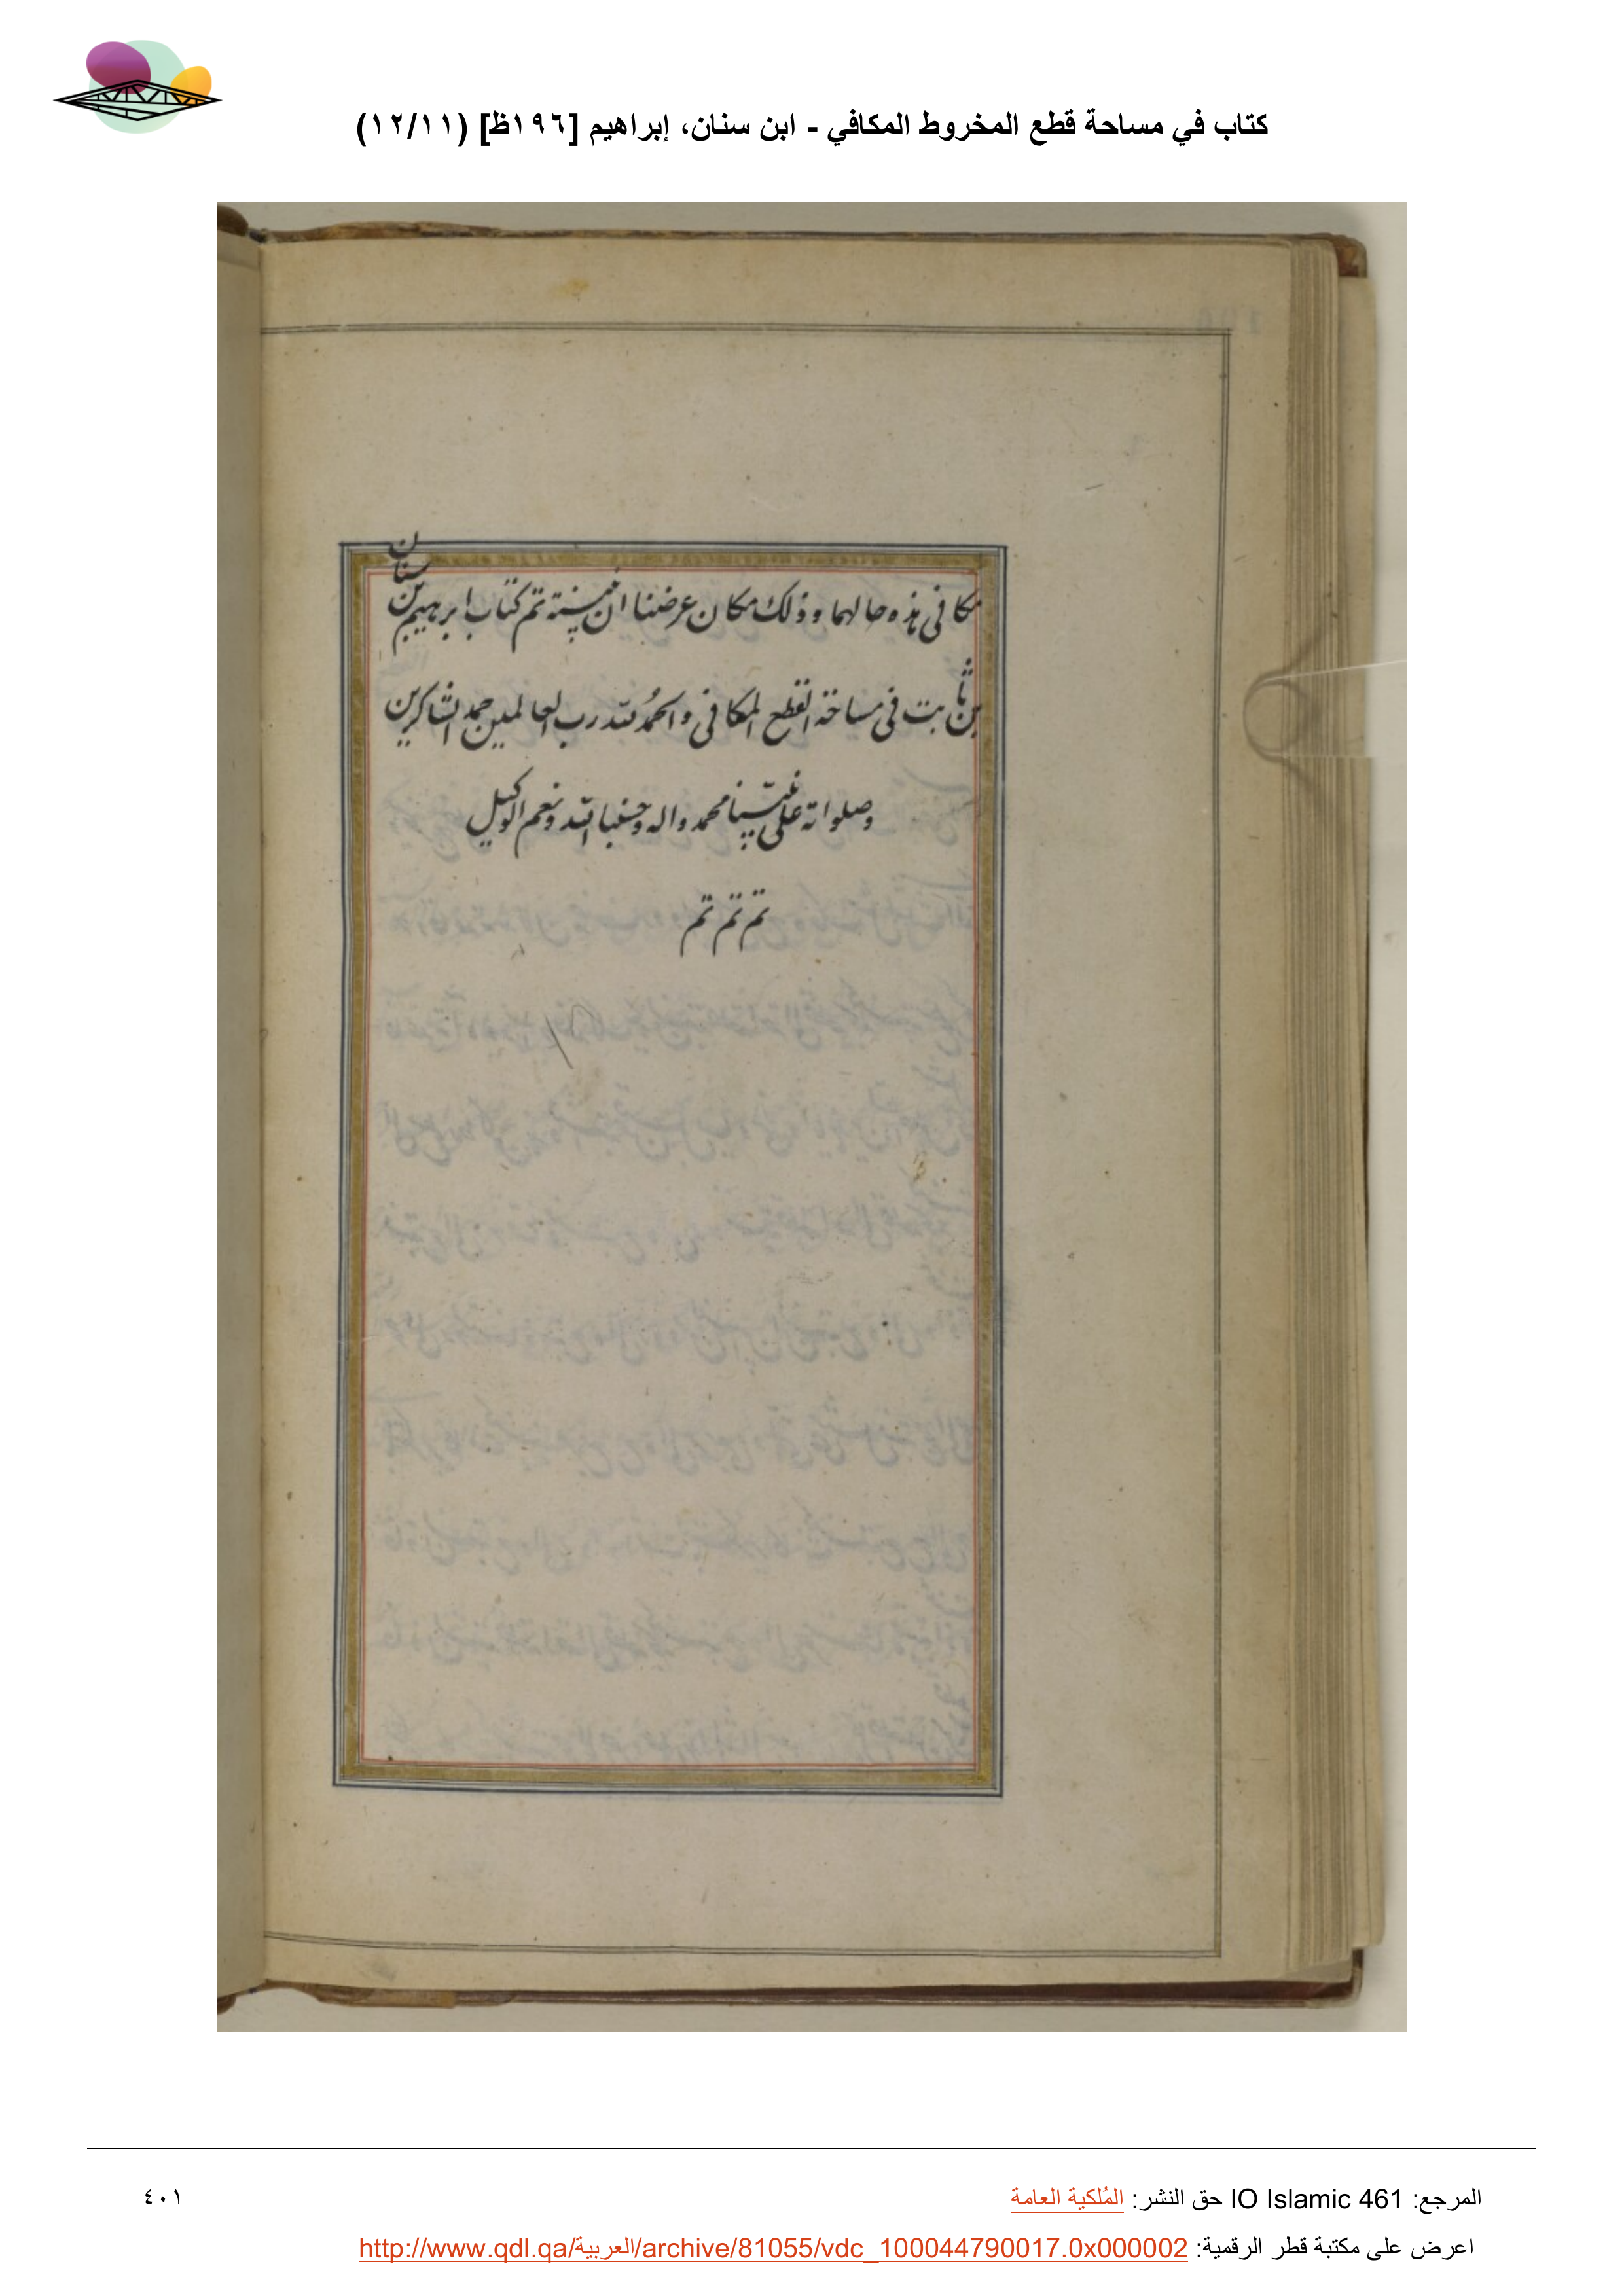 كتاب في مساحة قطع المخروط المكافي - ابن سنان، إبراهيم [١٩٦ظ] (١٢/١١)
مكافى هذه حالهما وذلك مكان عرضنا ان نبينه تم كتاب ابرهيم بن سنان
بن ثابت فى مساحة القطع المكافى والحمد لله رب العالمين حمد الشاكرين
وصلواته على نبينا محمد واله وحسبنا الله ونعم الوكيل
تم تم تم
المرجع: IO Islamic 461 حق النشر: المُلكية العامة
٤٠١
اعرض على مكتبة قطر الرقمية: http://www.qdl.qa/العربية/archive/81055/vdc_100044790017.0x000002